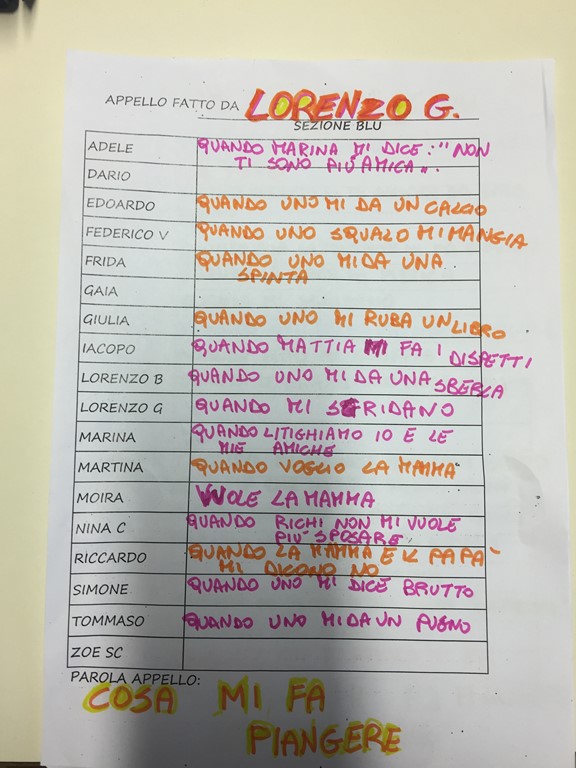 APPELLO FATTO DA LORENZO G.
SEZIONE BLU
ADELE QUANDO MARINA MI DICE: "NON
TI SONO PIÙ AMICA".
DARIO
EDOARDO QUANDO UNO MI DA UN CALCIO
FEDERICO V QUANDO UNO SQUALO MI MANGIA
FRIDA QUANDO UNO MI DA UNA
SPINTA
GAIA
GIULIA QUANDO UNO MI RUBA UN LIBRO
IACOPO QUANDO MATTIA MI FA I DISPETTI
LORENZO B QUANDO UNO MI DA UNA SBERLA
LORENZO G QUANDO MI SGRIDANO
MARINA QUANDO LITIGHIAMO IO E LE
MIE AMICHE
MARTINA QUANDO VOGLIO LA MAMMA
MOIRA VUOLE LA MAMMA
NINA C QUANDO RICHI NON MI VUOLE
PIÙ SPOSARE
RICCARDO QUANDO LA MAMMA E IL PAPÀ
MI DICONO NO
SIMONE QUANDO UNO MI DICE BRUTTO
TOMMASO QUANDO UNO MI DA UN PUGNO
ZOE SC
PAROLA APPELLO:
COSA MI FA
PIANGERE